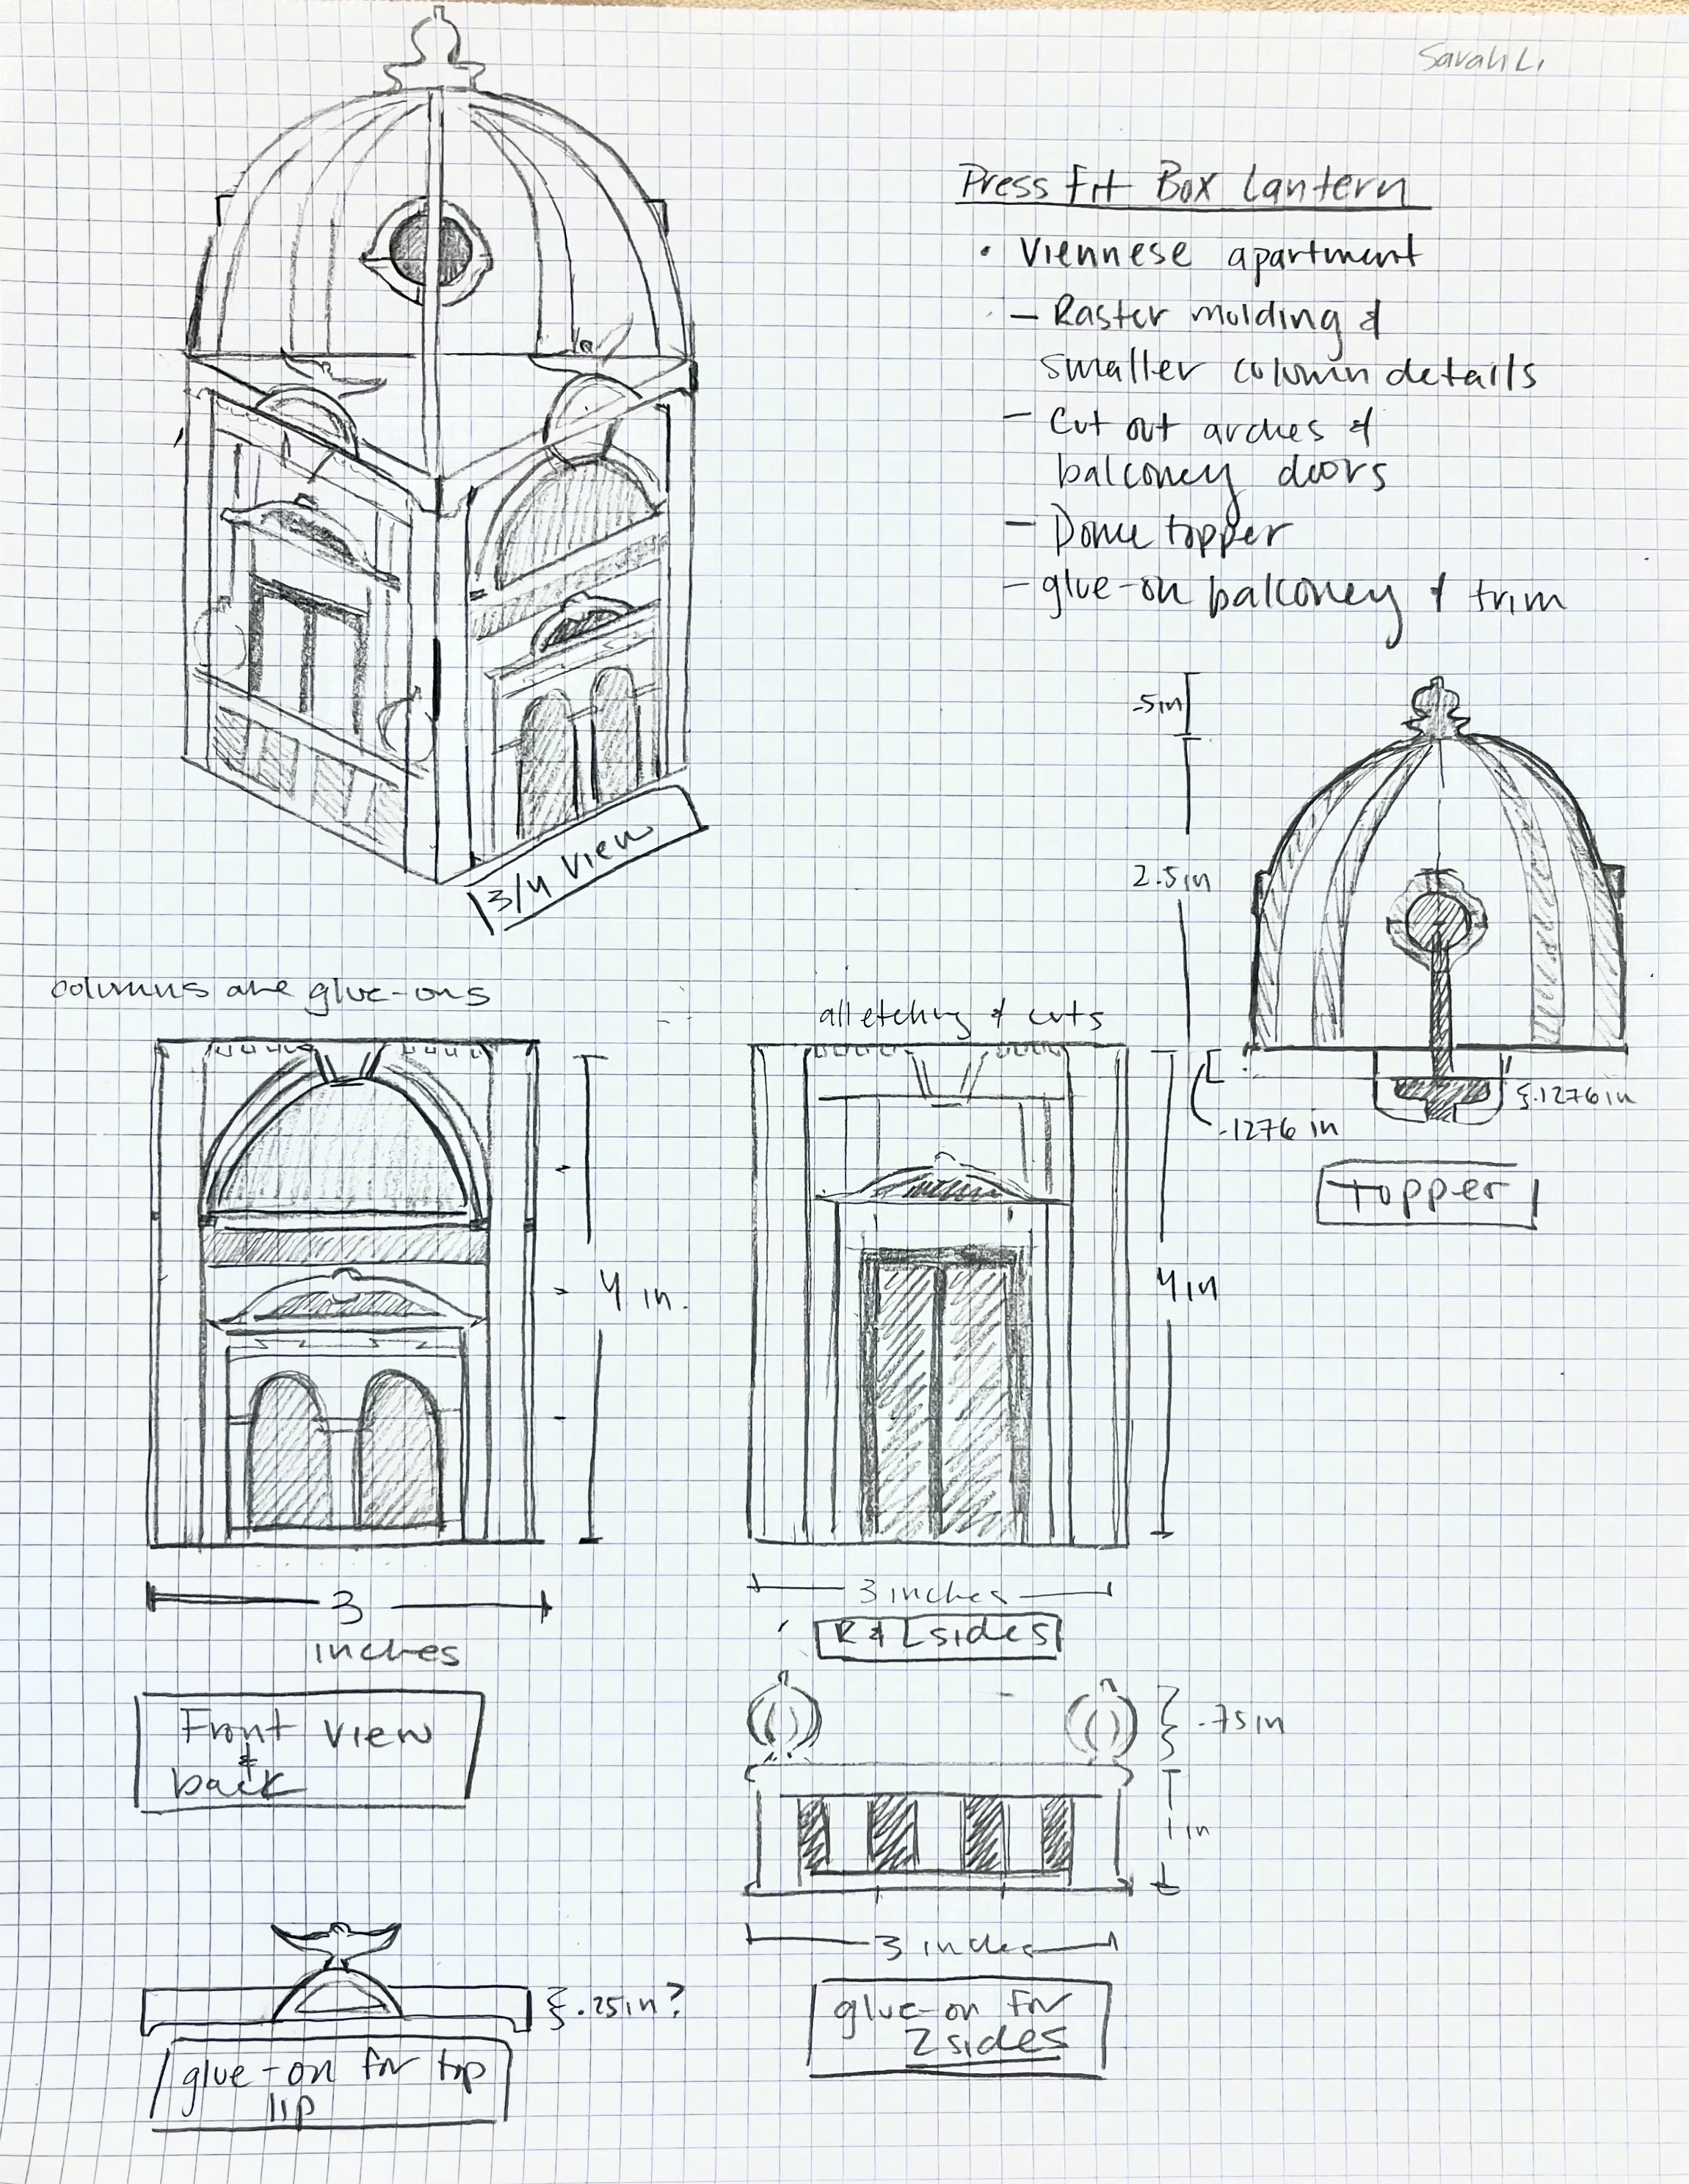 Sarah Li
Press Fit Box Lantern
• Viennese apartment
– Raster molding &
smaller column details
– Cut out arches &
balconey doors
– Dome topper
– glue-on balconey & trim
3/4 view
.5in
2.5in
.1276 in
.1276 in
topper
columns are glue-ons
4 in.
3
inches
Front view
&
back
all etching & cuts
4in
3 inches
R & L sides
.75in
1 in
3 inches
glue-on for
2 sides
.25in?
glue-on for top
lip